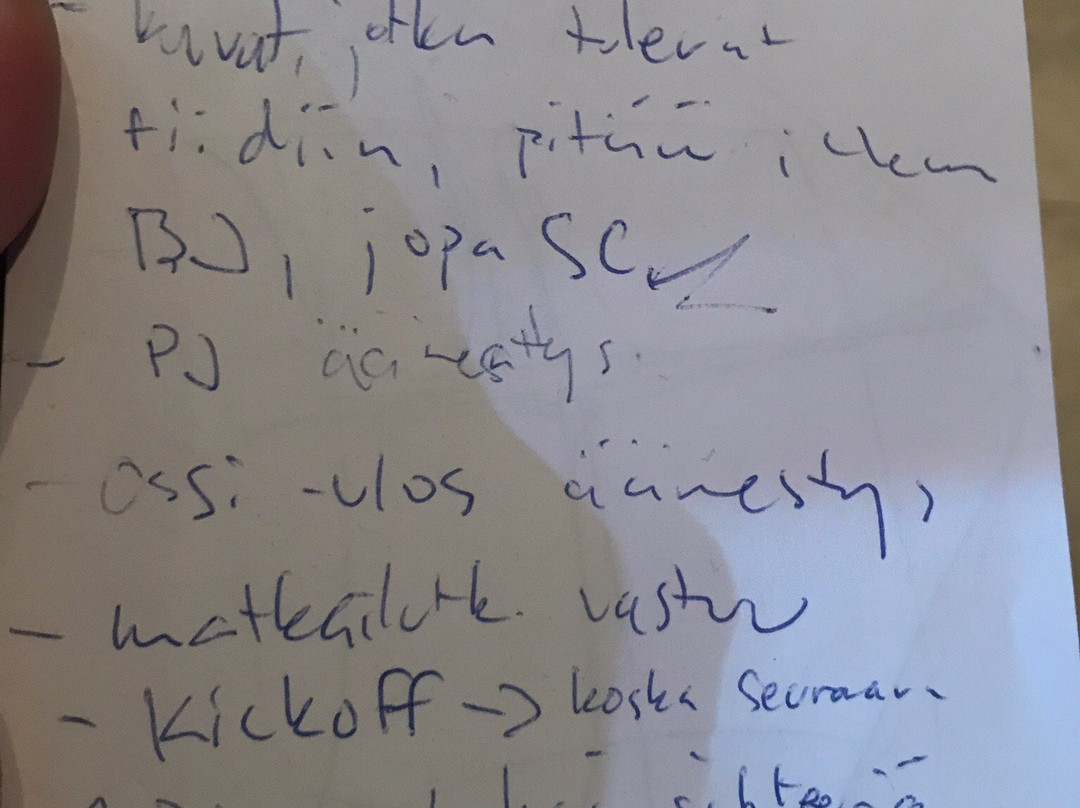 - kuvat, jotka tulevat
tiidiin, pitää
BJ, jopa SC
- PJ äänestys
- Ossi -ulos äänestys
- matkailutk. vastuu
- Kickoff -> koska seuraava